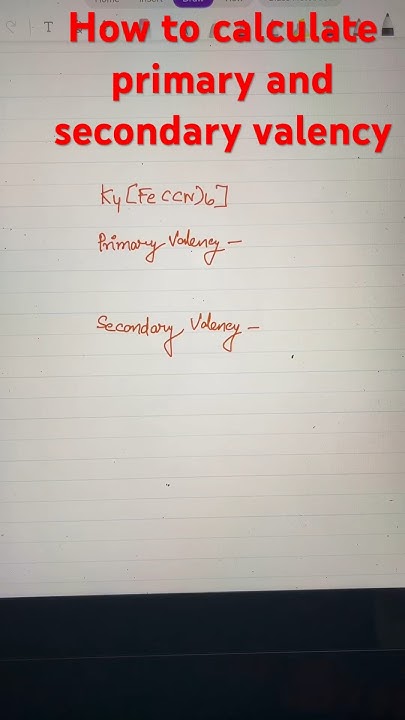 Home Insert Draw View
T
How to calculate
primary and
secondary valency
K4[Fe(CN)6]
Primary Valency –
Secondary Valency –